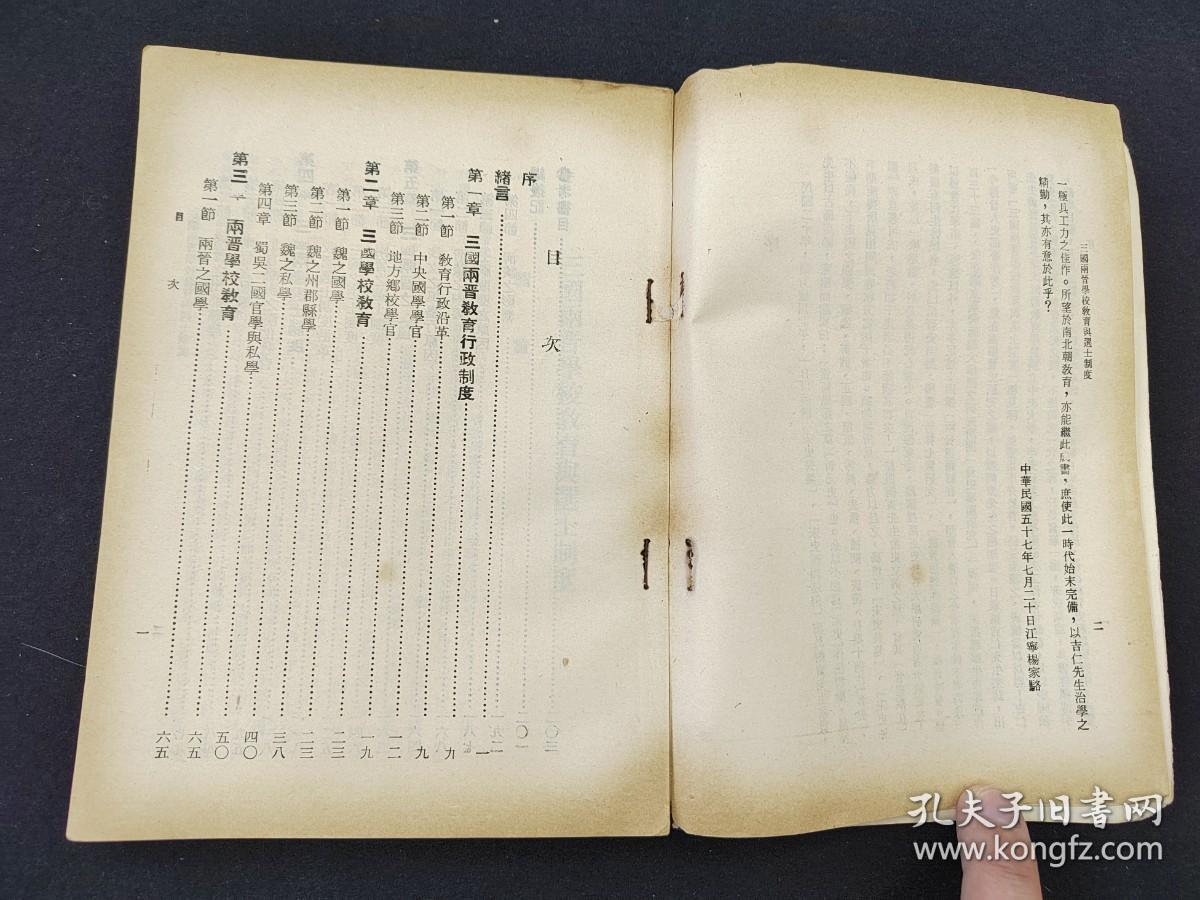 三國兩晉學校教育與選士制度
二
一極具工力之佳作。所望於南北朝教育，亦能繼此書，庶使此一時代始末完備，以吉仁先生治學之
精勤，其亦有意於此乎？
中華民國五十七年七月二十日江寧楊家駱
目次
序
緒言……一
第一章 三國兩晉教育行政制度……九
第一節 教育行政沿革……九
第二節 中央國學學官……一二
第三節 地方鄉校學官……一九
第二章 三國學校教育……二三
第一節 魏之國學……二三
第二節 魏之州郡縣學……三八
第三節 魏之私學……四〇
第四章 蜀吳二國官學與私學……五〇
第三 兩晉學校教育……六五
第一節 兩晉之國學……六五
目次
一
孔夫子旧书网
www.kongfz.com